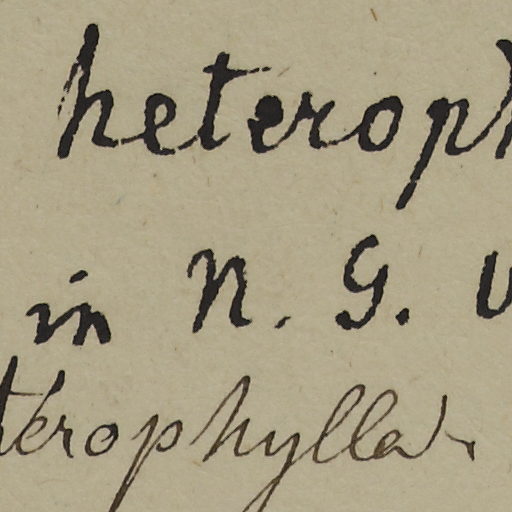 heteroph
in N. G. v
terophylla.